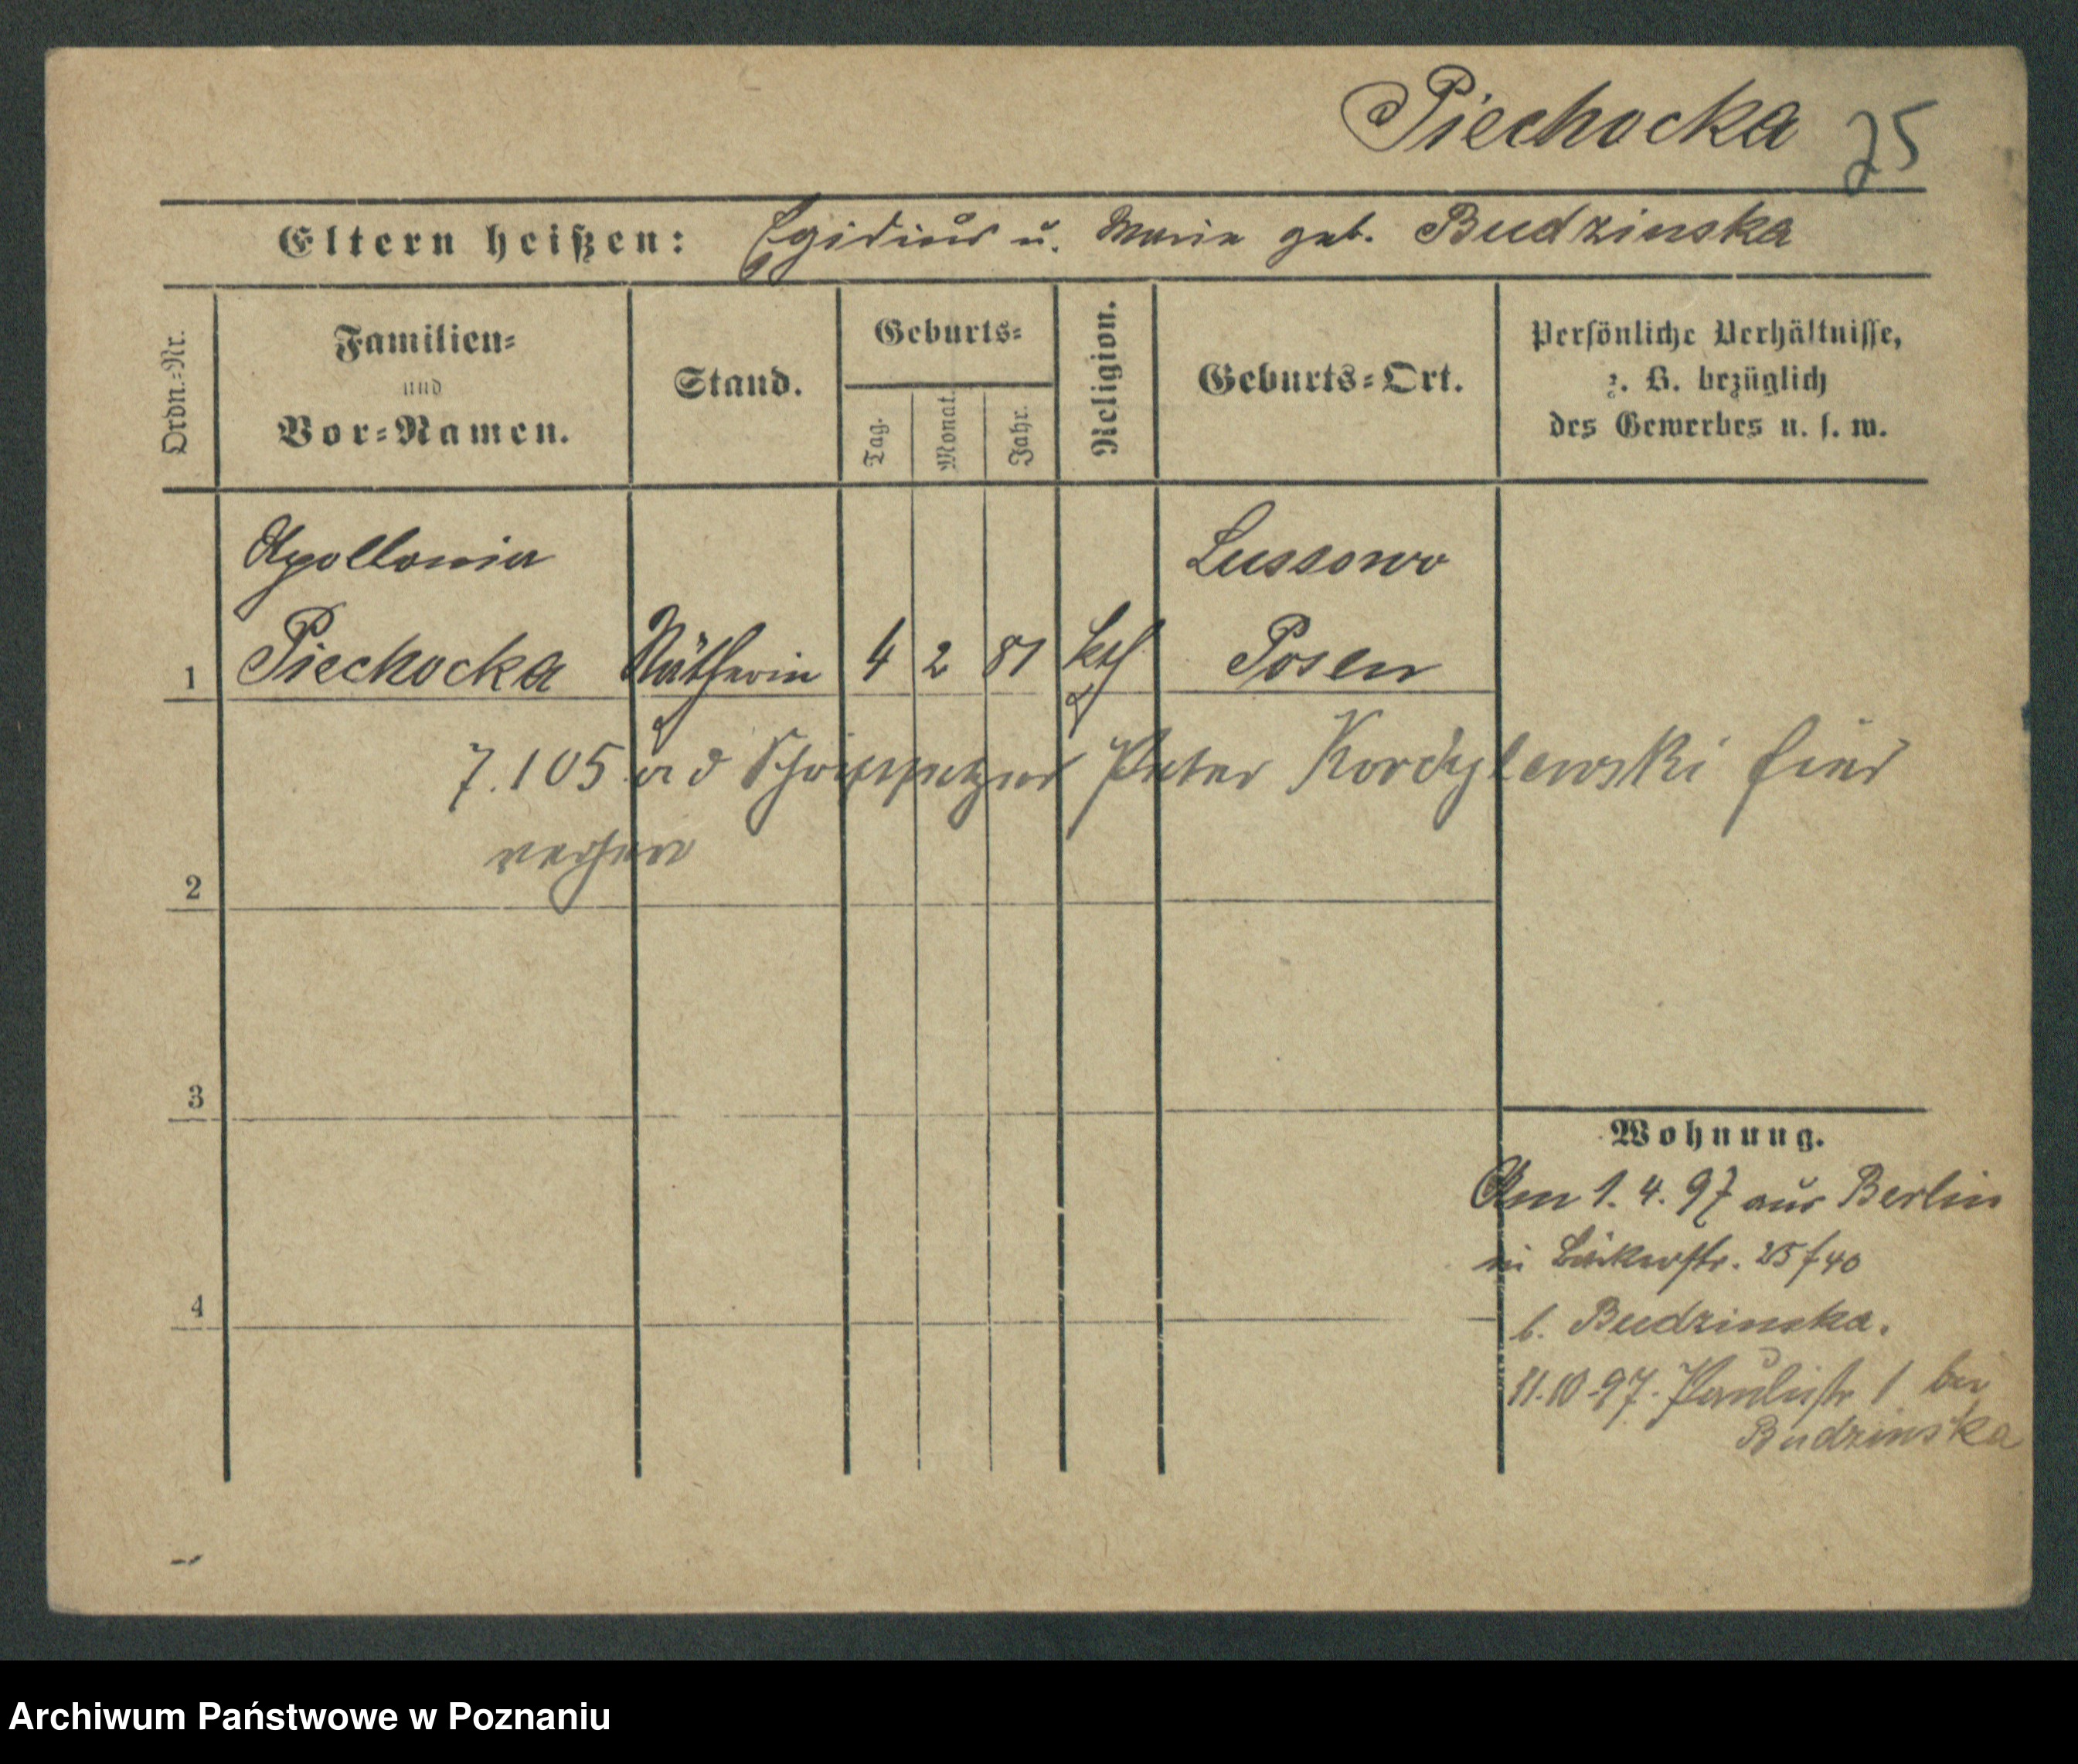 Piechocka 25
Eltern heißen: Egidius u. Marie geb. Budzinska
Ordn.=Nr.
Familien=
und
Vor=Namen.
Stand.
Geburts=
Tag.
Monat.
Jahr.
Religion.
Geburts=Ort.
Persönliche Verhältnisse,
z. B. bezüglich
des Gewerbes u. s. w.
Apollonia Lussowo
1 Piechocka Nätherin 4 2 81 kth Posen
7.1 05 a d Peter Kordylewski hier
2
3
4
Wohnung.
Am 1. 4. 97 aus Berlin
in Bäckerstr. 25 f 40
b. Budzinska.
11.10.97. Paulistr 1 bei
Budzinska
Archiwum Państwowe w Poznaniu